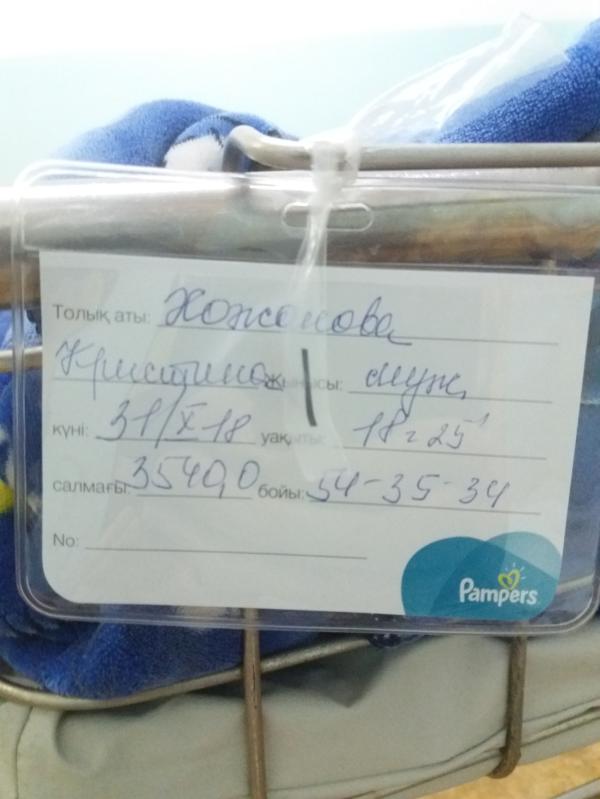 Толық аты: Хожонова
Кристина Жынысы: муж.
күні: 31/X 18 уақыты: 18ч 25'
салмағы: 3540,0 бойы: 54-35-34
No:
Pampers